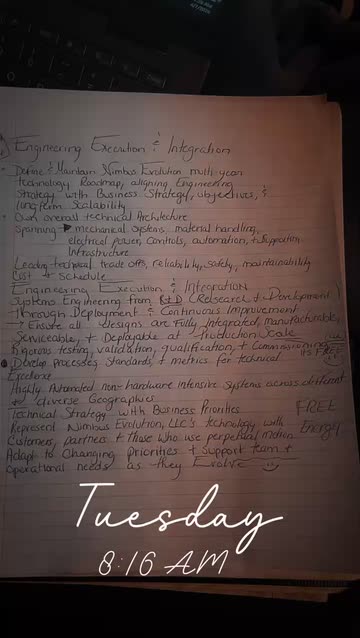 Engineering Execution & Integration
- Define & Maintain Nimbus Evolution multi-year
technology Roadmap, aligning Engineering
Strategy with Business Strategy, objectives, &
long-term Scalability
- Own overall technical Architecture
Spanning → mechanical systems, material handling,
electrical power, Controls, automation, & Support
Infrastructure
Leading technical trade offs, reliability, safety, maintainability
Cost & Schedule
Engineering Execution & Integration
Systems Engineering from R+D (Research & Development)
through Deployment & Continuous Improvement
→ Ensure all designs are Fully Integrated, Manufacturable,
Serviceable, & Deployable at Production Scale
Rigorous testing, validation, qualification, + Commissioning
its FREE
Develop Processes, Standards, + metrics for technical
Excellence
Highly Automated non-hardware intensive Systems across different
diverse Geographics
Technical Strategy with Business Priorities
FREE
Represent Nimbus Evolution, LLC's technology with
Energy
Customers, partners + those who use perpetual motion
Adapt to Changing priorities + Support team +
operational needs as they Evolve
Tuesday
8:16 AM